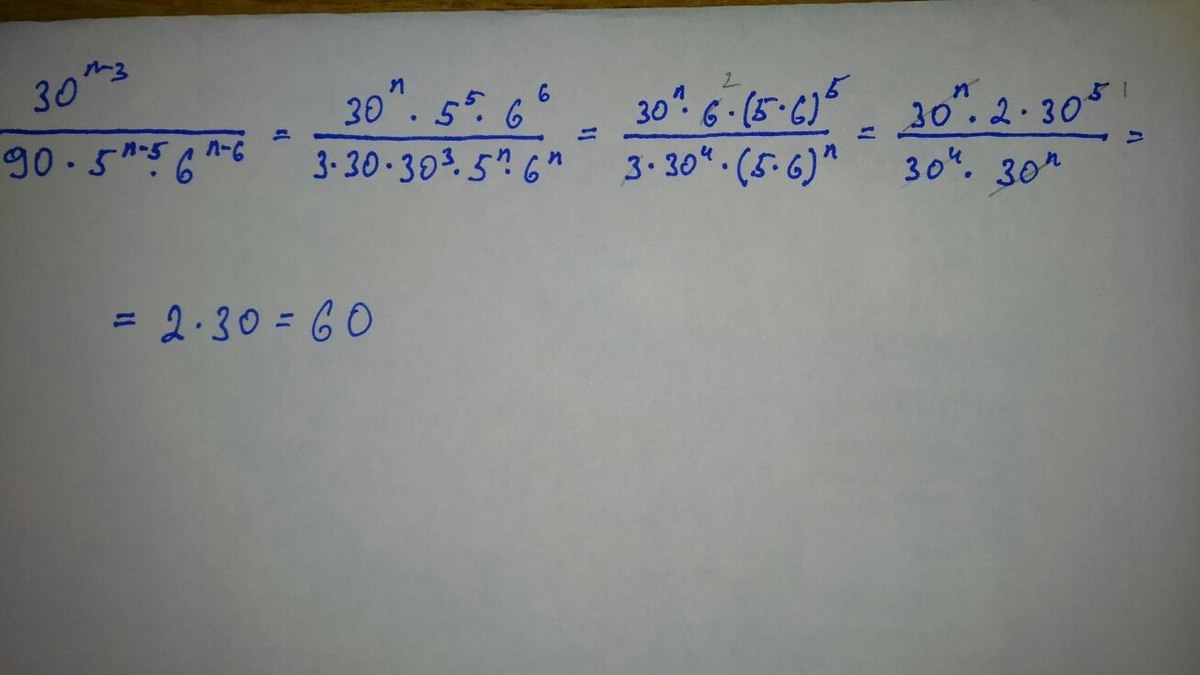 30^{n-3} / (90 · 5^{n-5} · 6^{n-6}) = (30^n · 5^5 · 6^6) / (3 · 30 · 30^3 · 5^n · 6^n) = (30^n · 6 · (5 · 6)^5) / (3 · 30^4 · (5 · 6)^n) = (30^n · 2 · 30^5) / (30^4 · 30^n) =
= 2 · 30 = 60